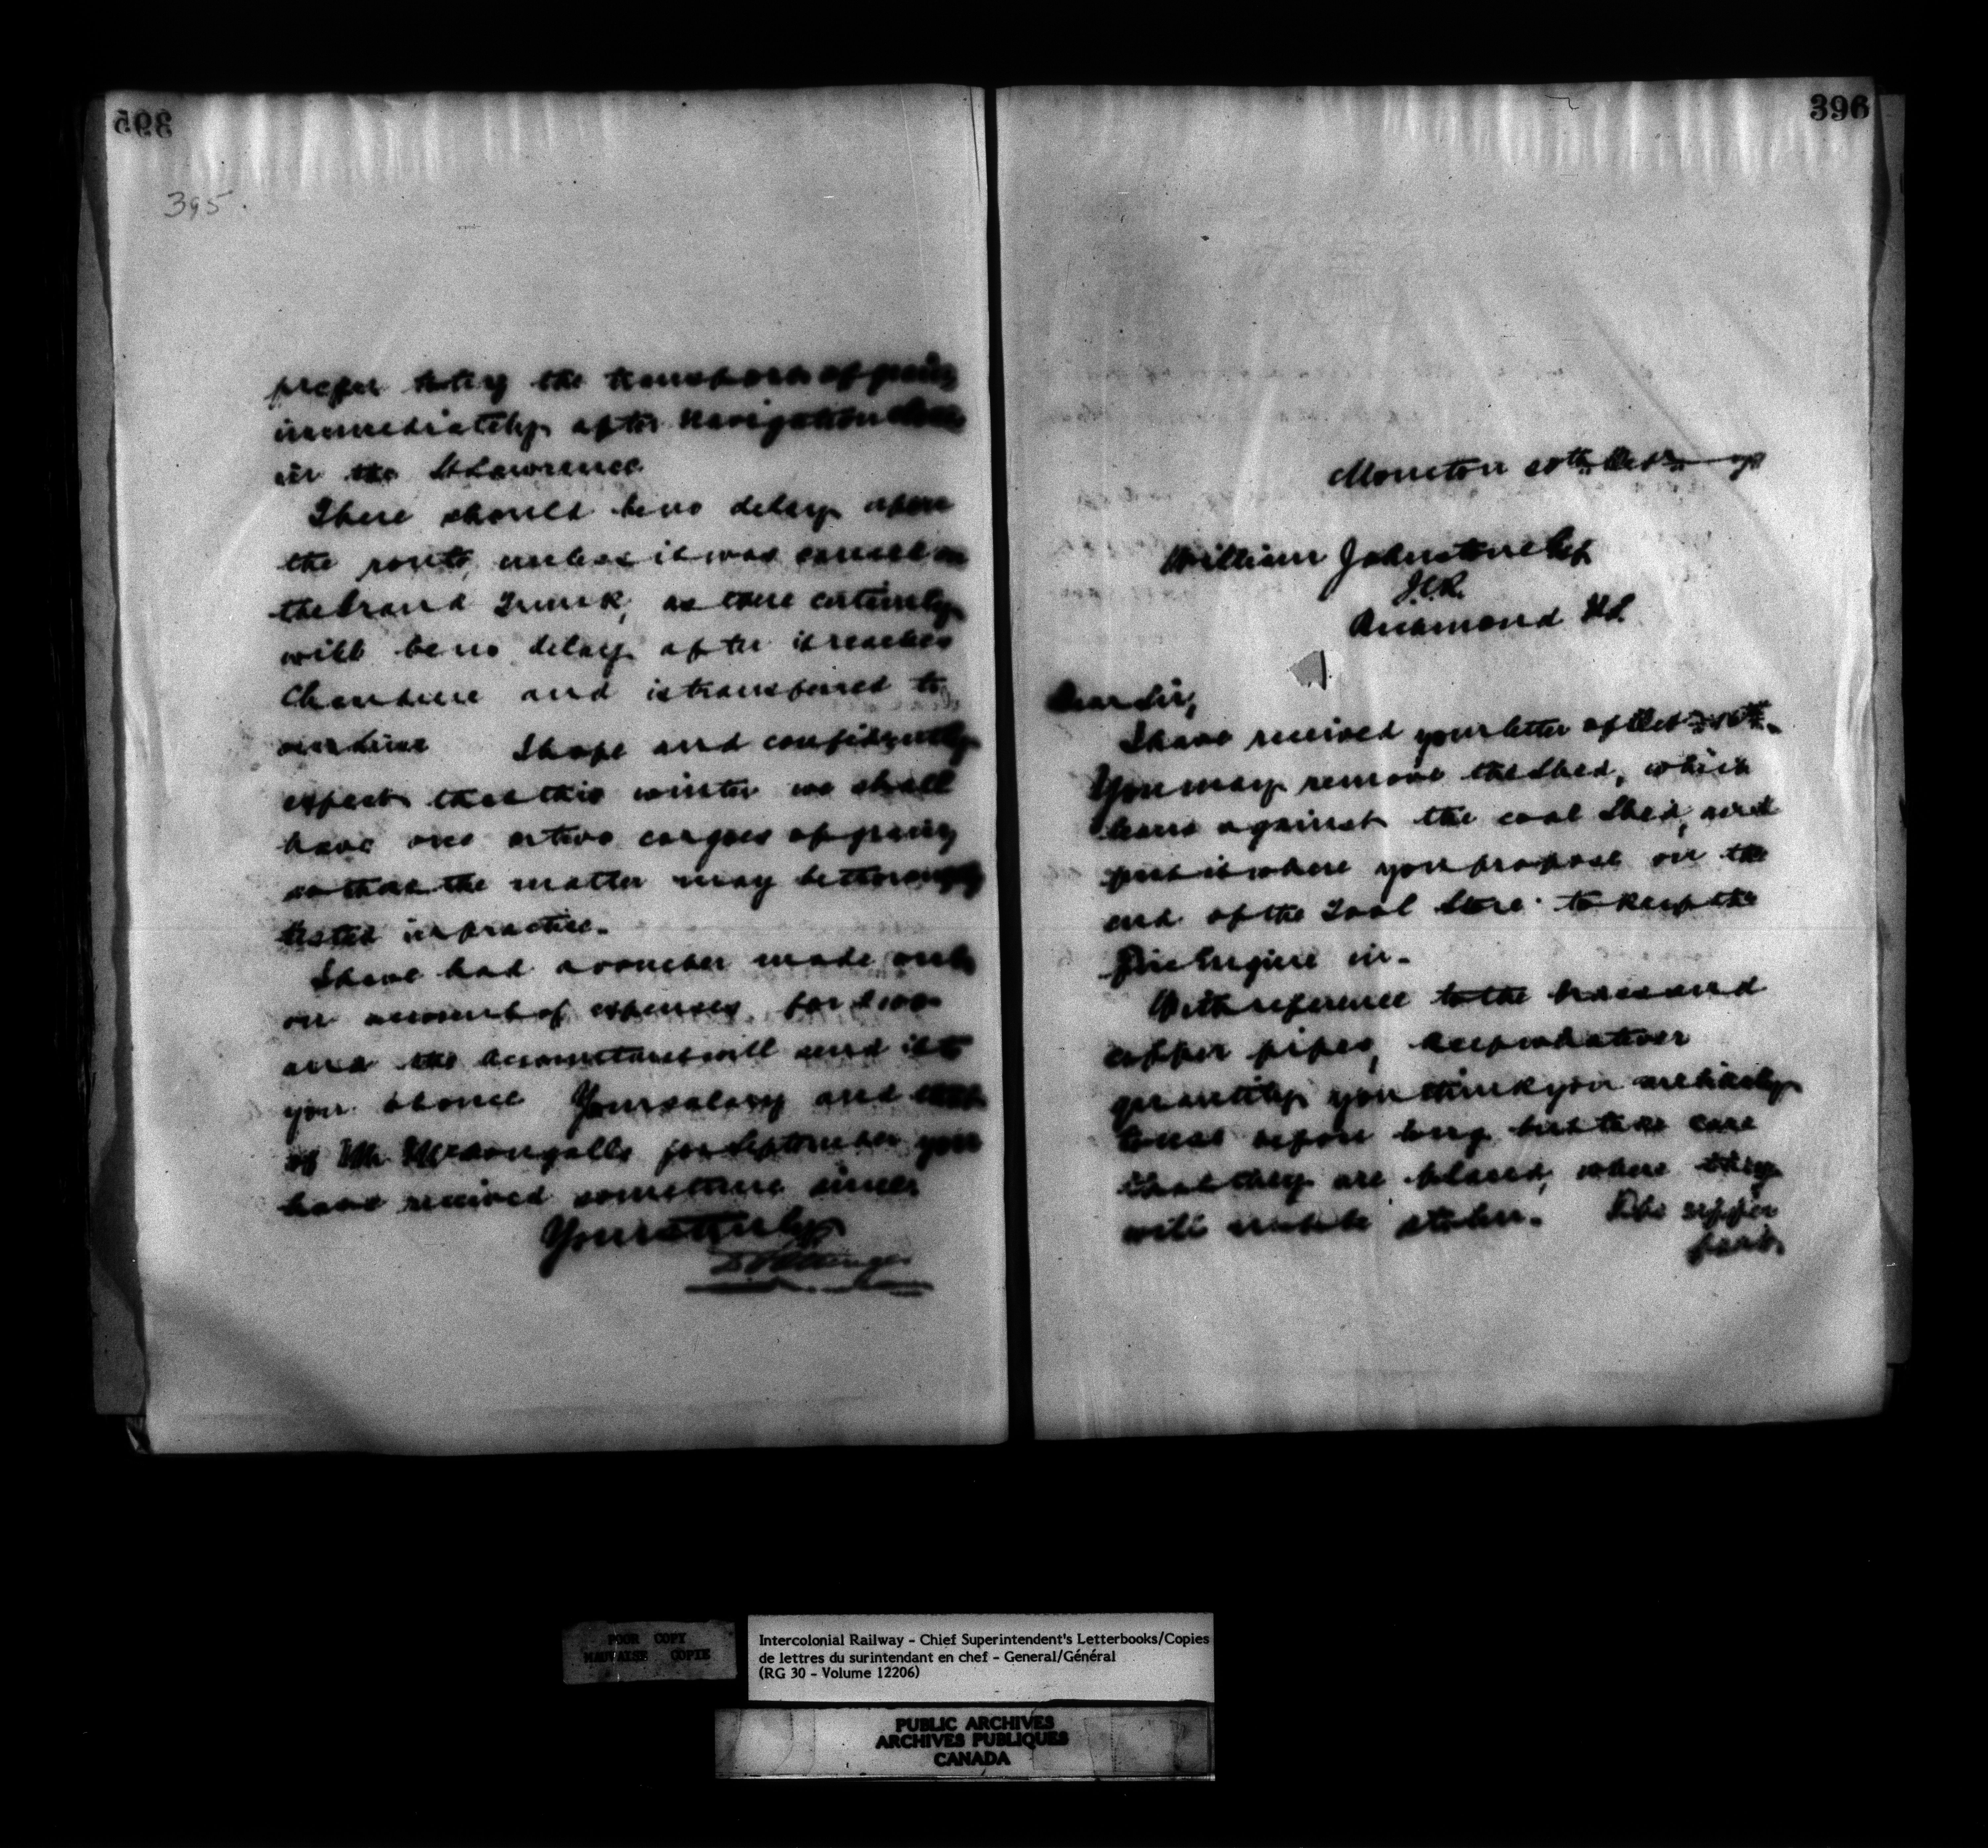 395
395.
prefer taking the transport of grain
immediately after navigation closes
in the St Lawrence
There should be no delay upon
the route, unless it was caused on
the Grand Trunk, as there certainly
will be no delay after it reaches
Chaudiere and is transferred to
our line I hope and confidently
expect that this winter we shall
have one or two cargoes of grain
so that the matter may be thoroughly
tested in practice.
I have had a voucher made out
on account of expenses for $100
and the Accountant will send it to
you at once Your salary and that
of Mr McDougalls for September you
have received sometime since.
Yours truly
D Pottinger
396
Moncton
William Johnstone Esq
I.C.R.
Richmond N.S.
Dear Sir,
I have received your letter of Oct
You may remove the Shed, which
leans against the coal Shed, and
put it where you propose on the
end of the Tool Store to keep the
Fire Engine in.
With reference to the brass and
copper pipes, keep whatever
quantity you think you are likely
to use before long but take care
that they are placed, where they
will not be stolen. The copper
POOR COPY
MAUVAISE COPIE
Intercolonial Railway - Chief Superintendent's Letterbooks/Copies
de lettres du surintendant en chef - General/Général
(RG 30 - Volume 12206)
PUBLIC ARCHIVES
ARCHIVES PUBLIQUES
CANADA